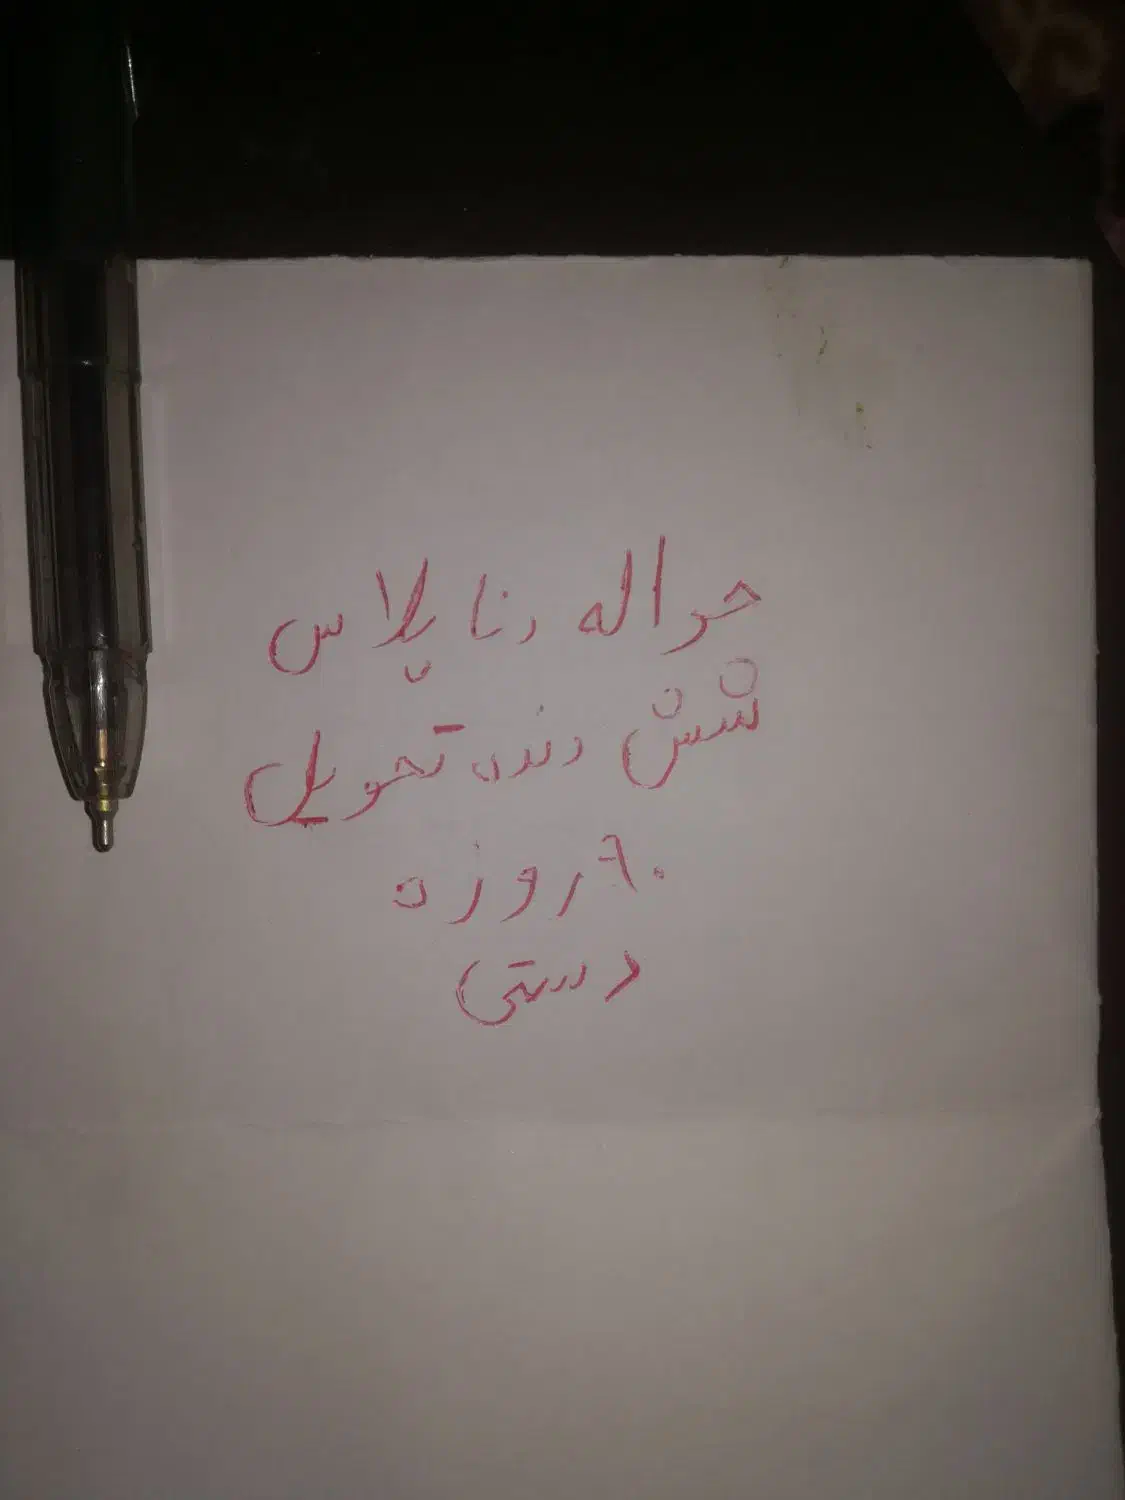 حواله دنا پلاس
شش دنده تحویل
۶۰ روزه
دستی